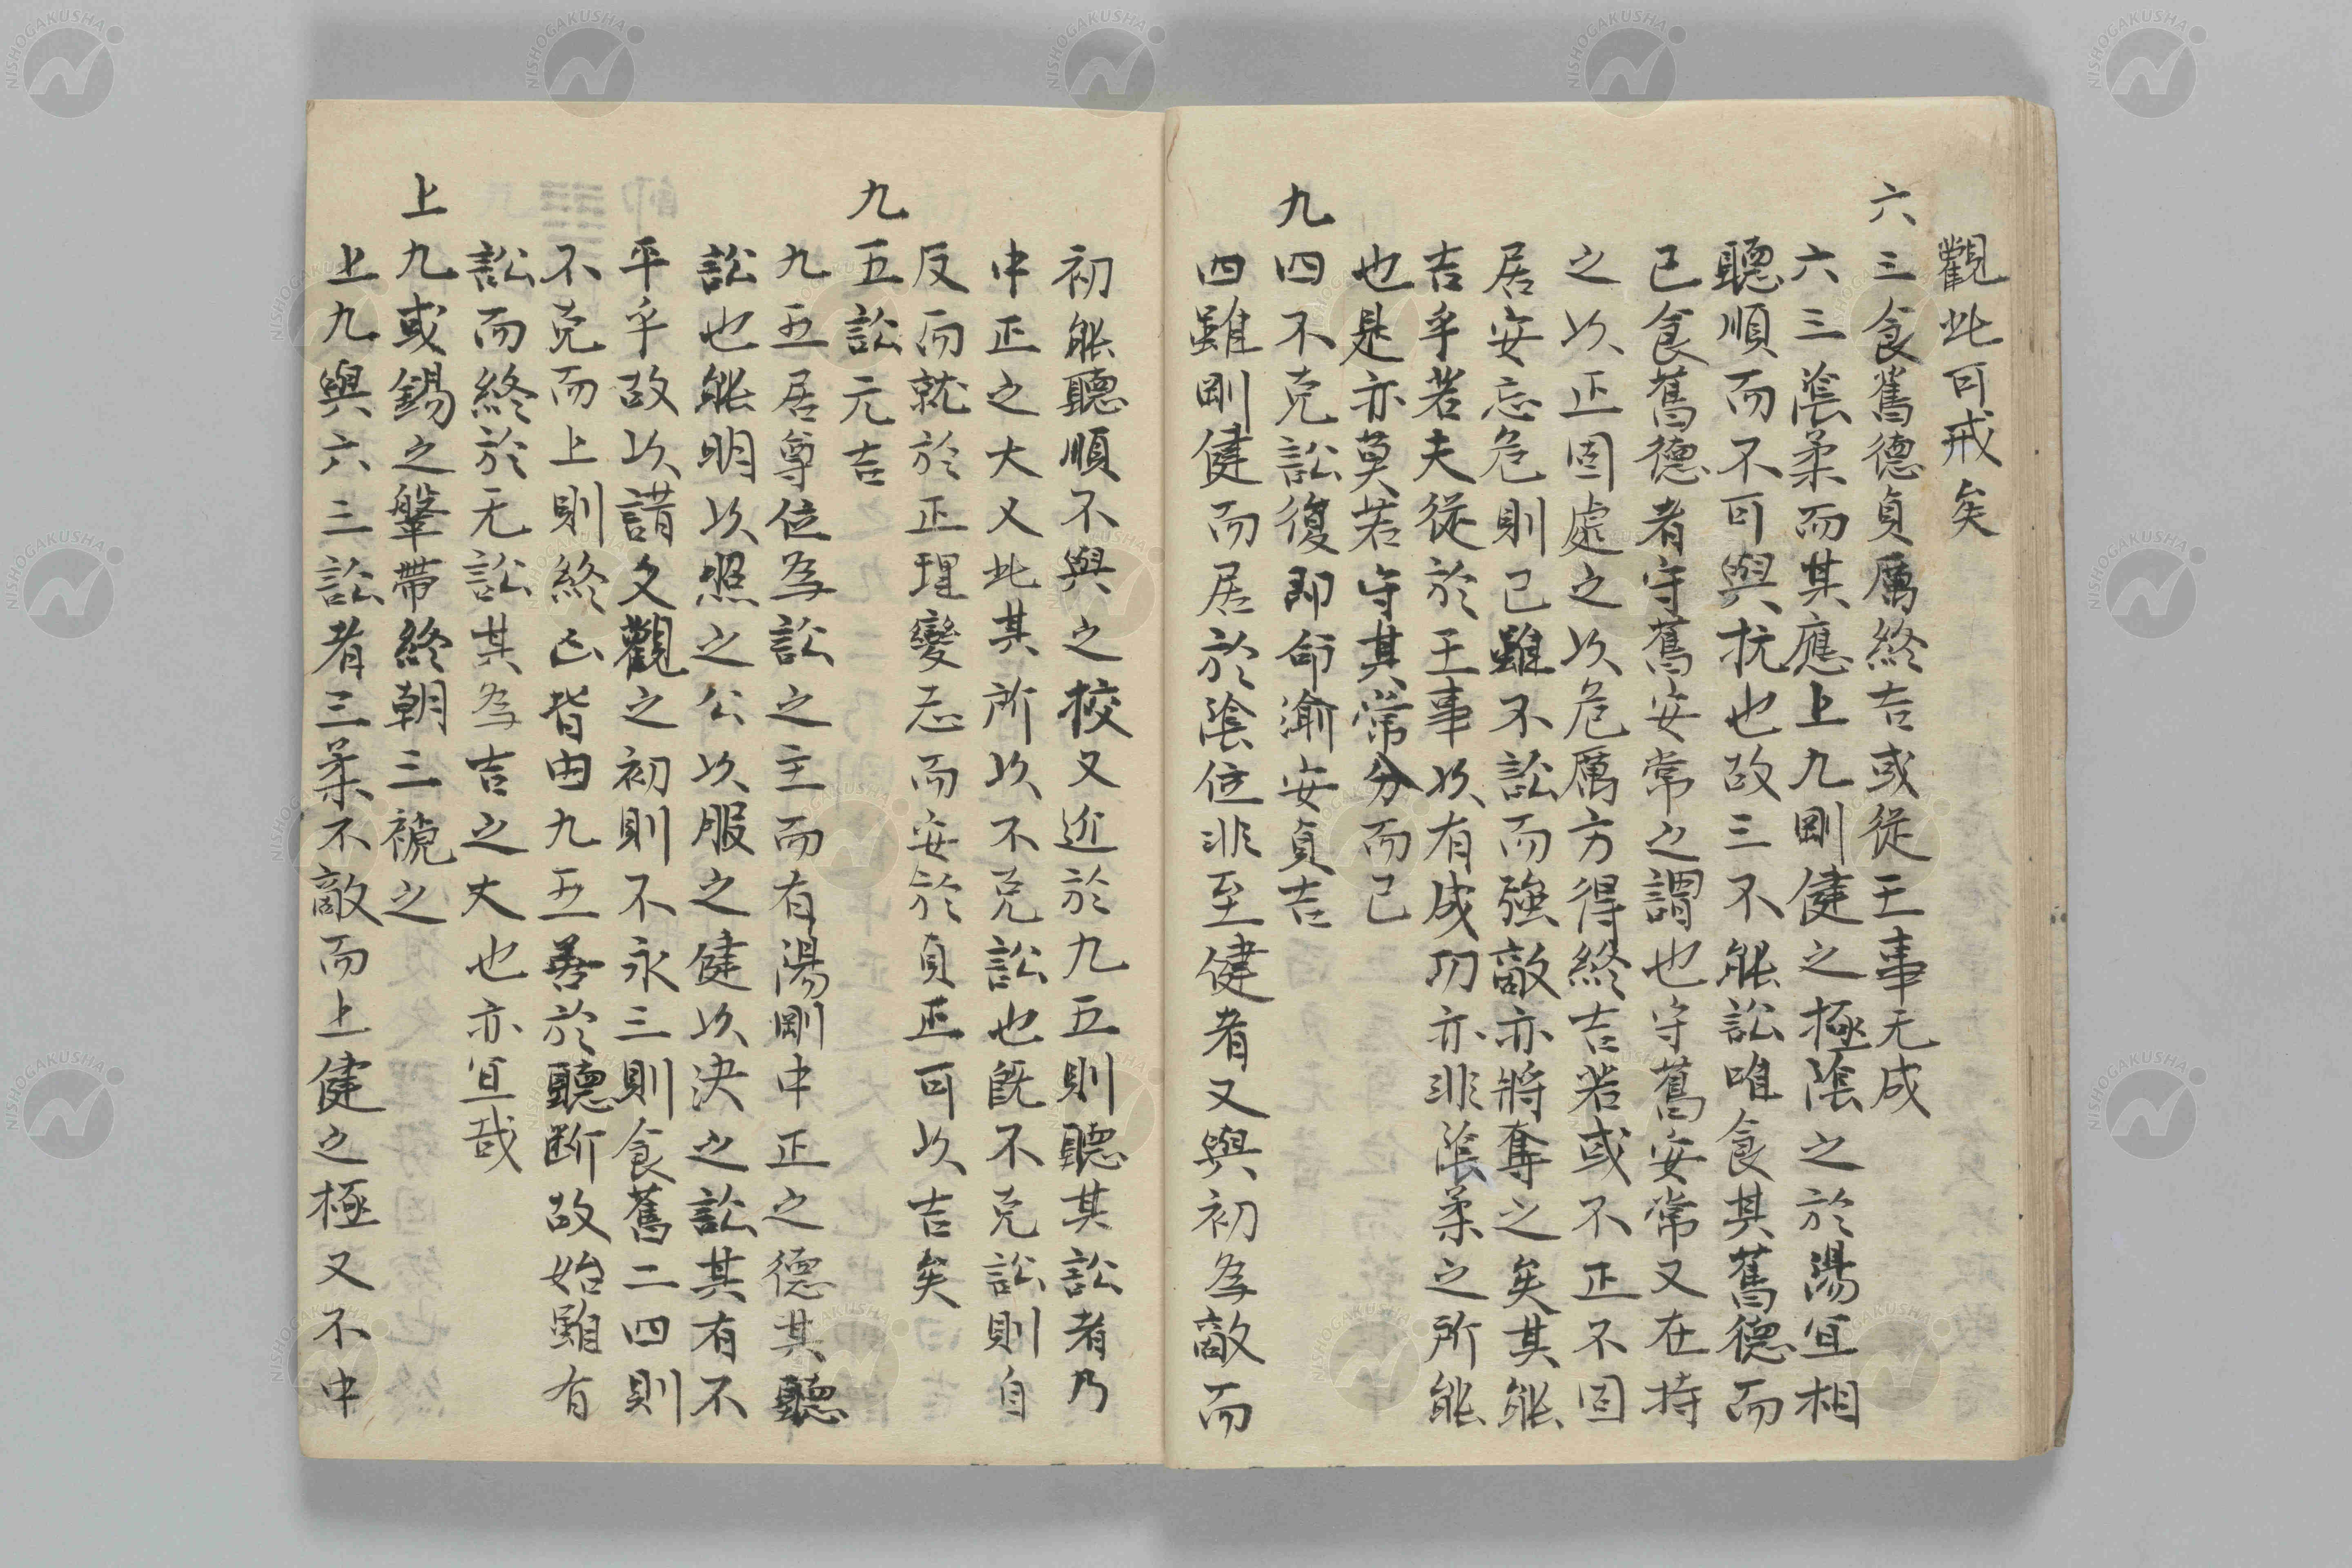 觀此可戒矣
六三食舊德貞厲終吉或從王事无成
六三陰柔而其應上九剛健之極陰之於陽宜相
聽順而不可與抗也故三不能訟唯食其舊德而
已食舊德者守舊安常之謂也守舊安常又在持
之以正固處之以危厲方得終吉若或不正不固
居安忘危則已雖不訟而強敵亦將奪之矣其能
吉乎若夫從於王事以有成功亦非陰柔之所能
也是亦莫若守其常分而已
九四不克訟復即命渝安貞吉
四雖剛健而居於陰位非至健者又與初為敵而
初能聽順不與之校又近於九五則聽其訟者乃
中正之大人此其所以不克訟也既不克訟則自
反而就於正理變志而安於貞正可以吉矣
九五訟元吉
九五居尊位為訟之主而有陽剛中正之德其聽
訟也能明以照之公以服之健以決之訟其有不
平乎故以諸爻觀之初則不永三則食舊二四則
不克而上則終凶皆由九五善於聽斷故始雖有
訟而終於无訟其為吉之大也亦宜哉
上九或錫之鞶帶終朝三褫之
上九與六三訟者三柔不敵而上健之極又不中